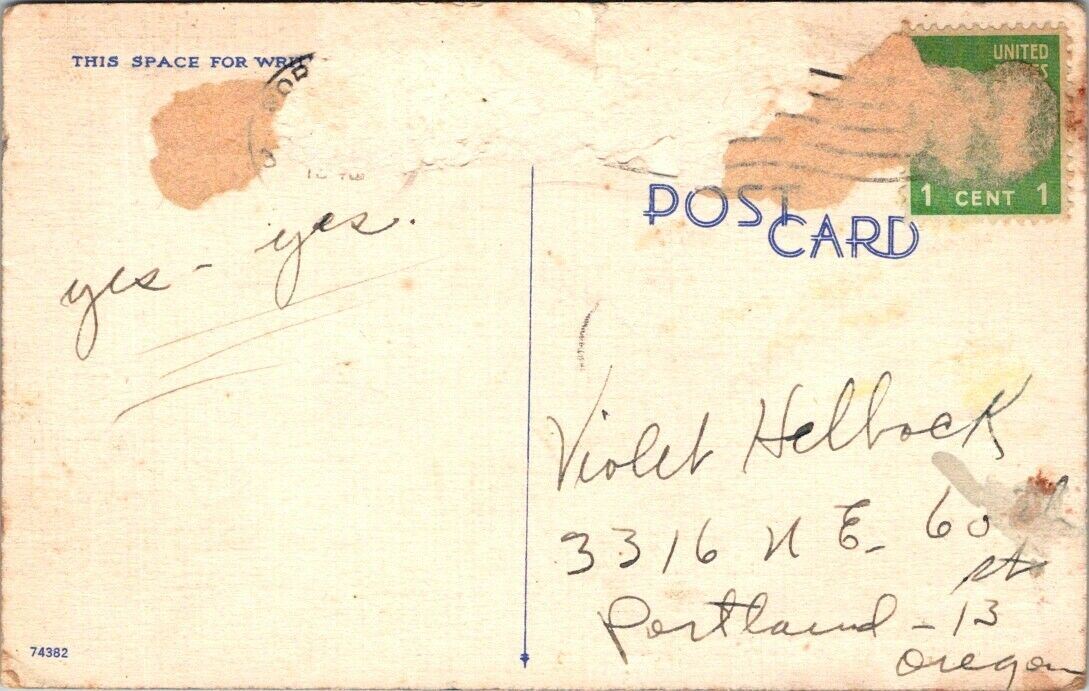 THIS SPACE FOR WRIT
UNITED
ES
1 CENT 1
POST
CARD
yes - yes.
Violet Helbock
3316 N E. 60
st
Portland - 13
Oregon
74382